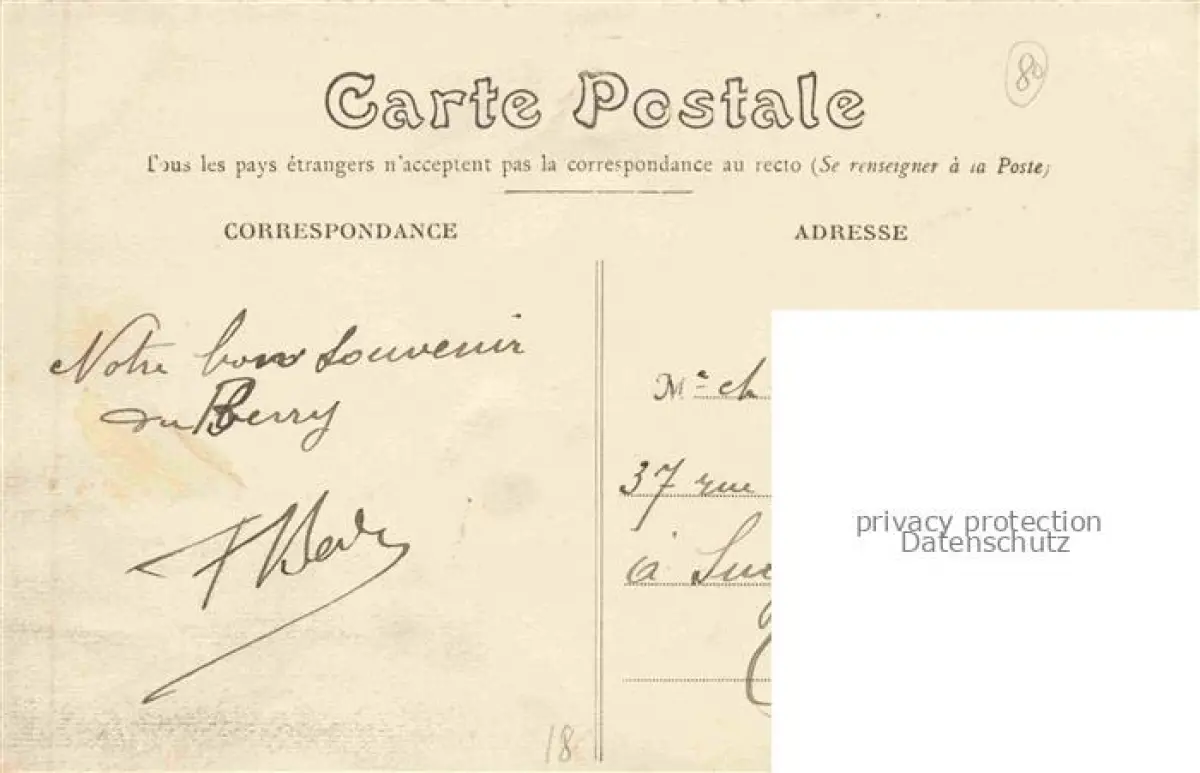 80
Carte Postale
Tous les pays étrangers n'acceptent pas la correspondance au recto (Se renseigner à la Poste)
CORRESPONDANCE
Notre bon souvenir
du Berry
18
ADRESSE
37 rue
à
privacy protection
Datenschutz